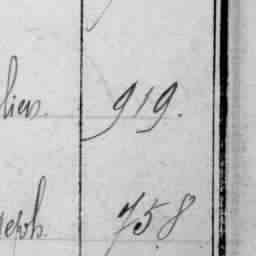 lien. 919.
seph. 758